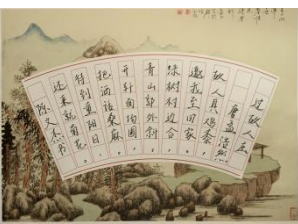 过故人庄
唐孟浩然
故人具鸡黍
邀我至田家
绿树村边合
青山郭外斜
开轩面场圃
把酒话桑麻
待到重阳日
还来就菊花
陈文书